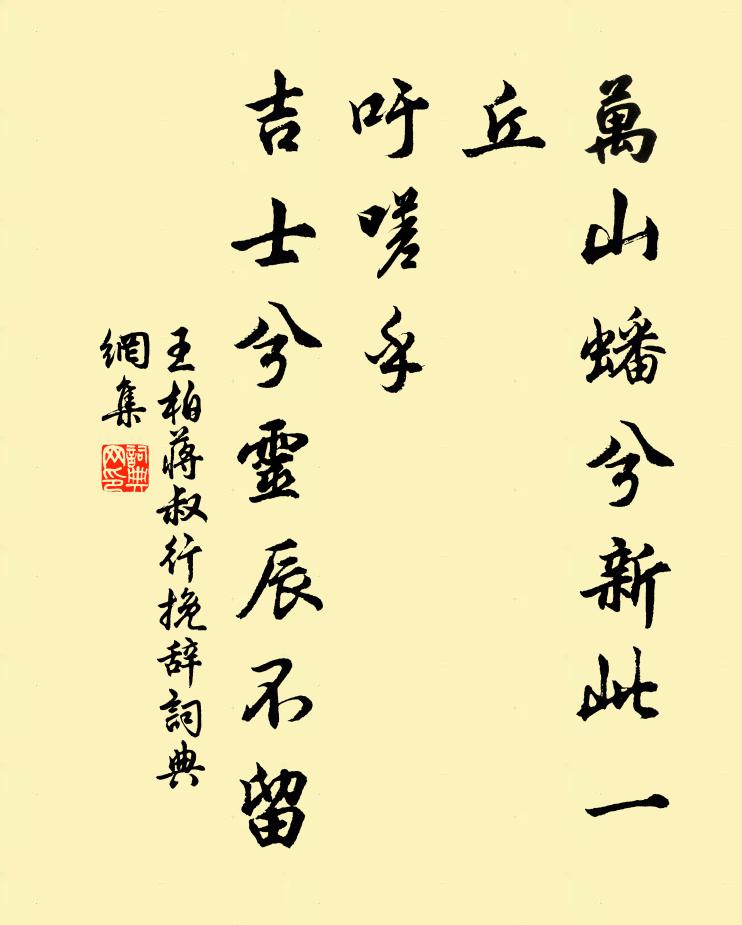 萬山蟠兮新此一
丘
吁嗟乎
吉士兮靈辰不留
王柏蔣叔行挽辞詞典
網集
詞典
网印